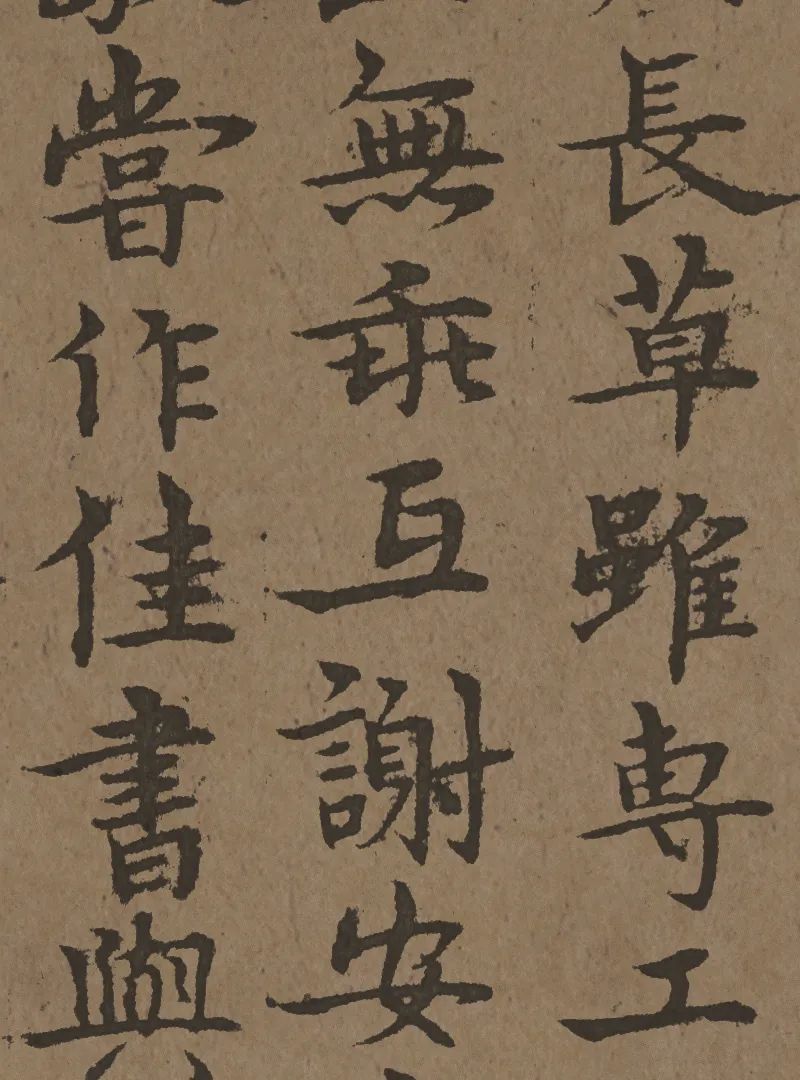 長草雖専工
無乖互謝安
嘗作佳書與